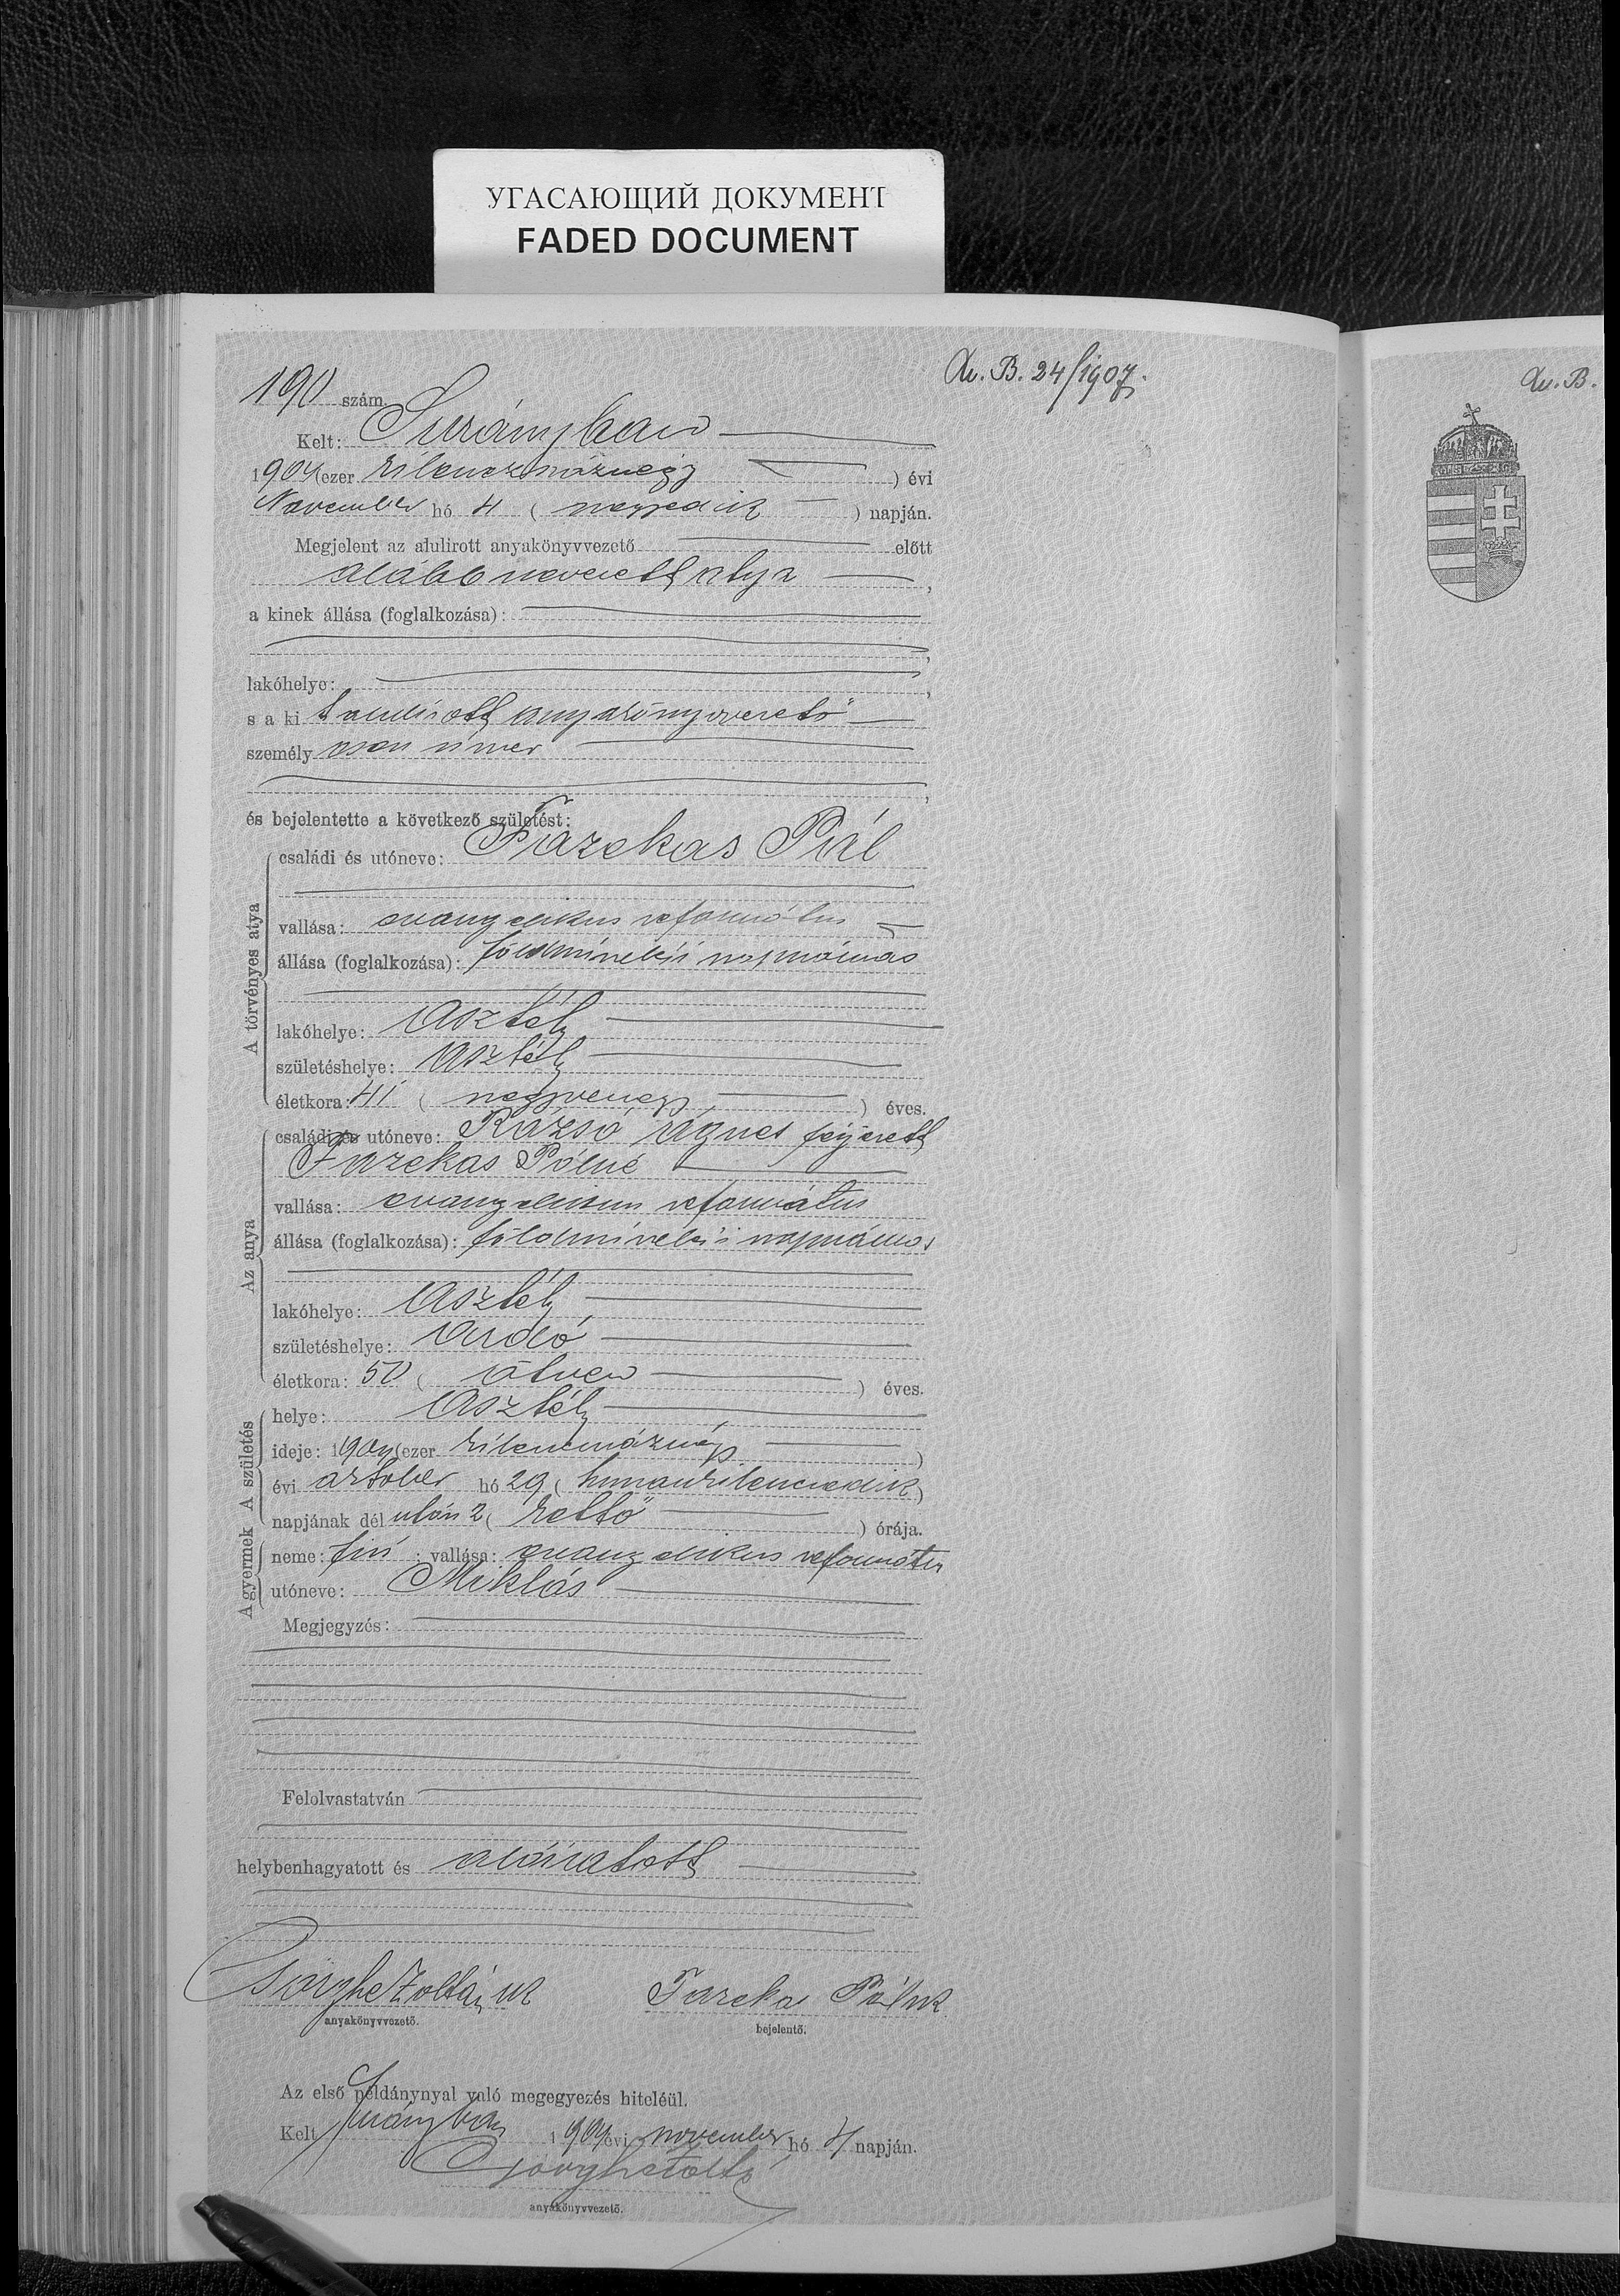 УГАСАЮЩИЙ ДОКУМЕНТ
FADED DOCUMENT
B. 24/1907.
B.
190 szám.
Kelt: Surányban
1904 (ezer kilencszáznégy ) évi
November hó 4 ( negyedik ) napján.
Megjelent az alulirott anyakönyvvezető előtt
alább nevezett atya ,
a kinek állása (foglalkozása):
,
lakóhelye: ,
s a ki t anyakönyvvezető
személy esen ismer
,
és bejelentette a következő születést:
A törvényes atya
családi és utóneve: Fazekas Pál
vallása: evangelikus református
állása (foglalkozása): földmívelési napszámos
lakóhelye: Asztély
születéshelye: Asztély
életkora: 41 ( negyvenegy ) éves.
Az anya
családi és utóneve: Rázsó Ágnes férjezett
Fazekas Pálné
vallása: evangelikus református
állása (foglalkozása): földmívelési napszámos
lakóhelye: Asztély
születéshelye: Ardó
életkora: 50 ( ötven ) éves.
A születés
helye: Asztély
ideje: 1904 (ezer kilencszáznégy )
évi október hó 29 ( huszonkilencedik )
napjának dél után 2 ( kettő ) órája.
A gyermek
neme: fiú ; vallása: evangelikus református
utóneve: Miklós
Megjegyzés:
Felolvastatván
helybenhagyatott és aláiratott
Zoltán
Fazeka Pál
anyakönyvvezető.
bejelentő.
Az első példánynyal való megegyezés hiteléül.
Kelt Surányban 1904 évi november hó 4 napján.
anyakönyvvezető.